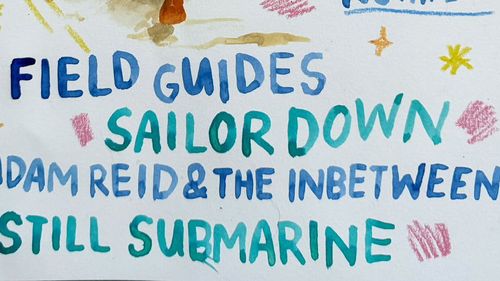 FIELD GUIDES
SAILOR DOWN
ADAM REID & THE INBETWEEN
STILL SUBMARINE